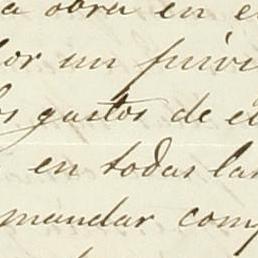 a obra en e
or un privi
os gastos de e
en todas las
mandar comp